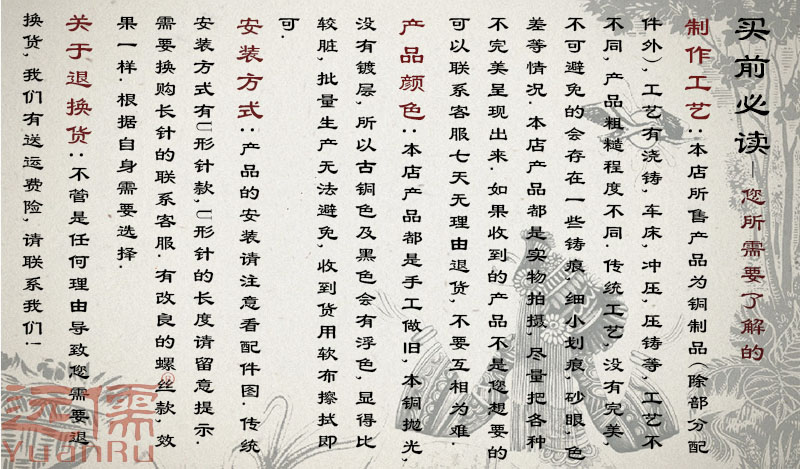 买前必读—您所需要了解的
制作工艺:本店所售产品为铜制品(除部分配
件外),工艺有浇铸,车床,冲压,压铸等,工艺不
不同,产品粗糙程度不同.传统工艺,没有完美,
不可避免的会存在一些铸痕,细小划痕,砂眼,色
差等情况.本店产品都是实物拍摄,尽量把各种
不完美呈现出来.如果收到的产品不是您想要的
可以联系客服七天无理由退货,不要互相为难.
产品颜色:本店产品都是手工做旧,本铜抛光,
没有镀层,所以古铜色及黑色会有浮色,显得比
较脏,批量生产无法避免,收到货用软布擦拭即
可.
安装方式:产品的安装请注意看配件图.传统
安装方式有U形针款,U形针的长度请留意提示.
需要换购长针的联系客服.有改良的螺丝款,效
果一样.根据自身需要选择.
关于退换货:不管是任何理由导致您需要退
换货,我们有送运费险,请联系我们!
远儒
YuanRu